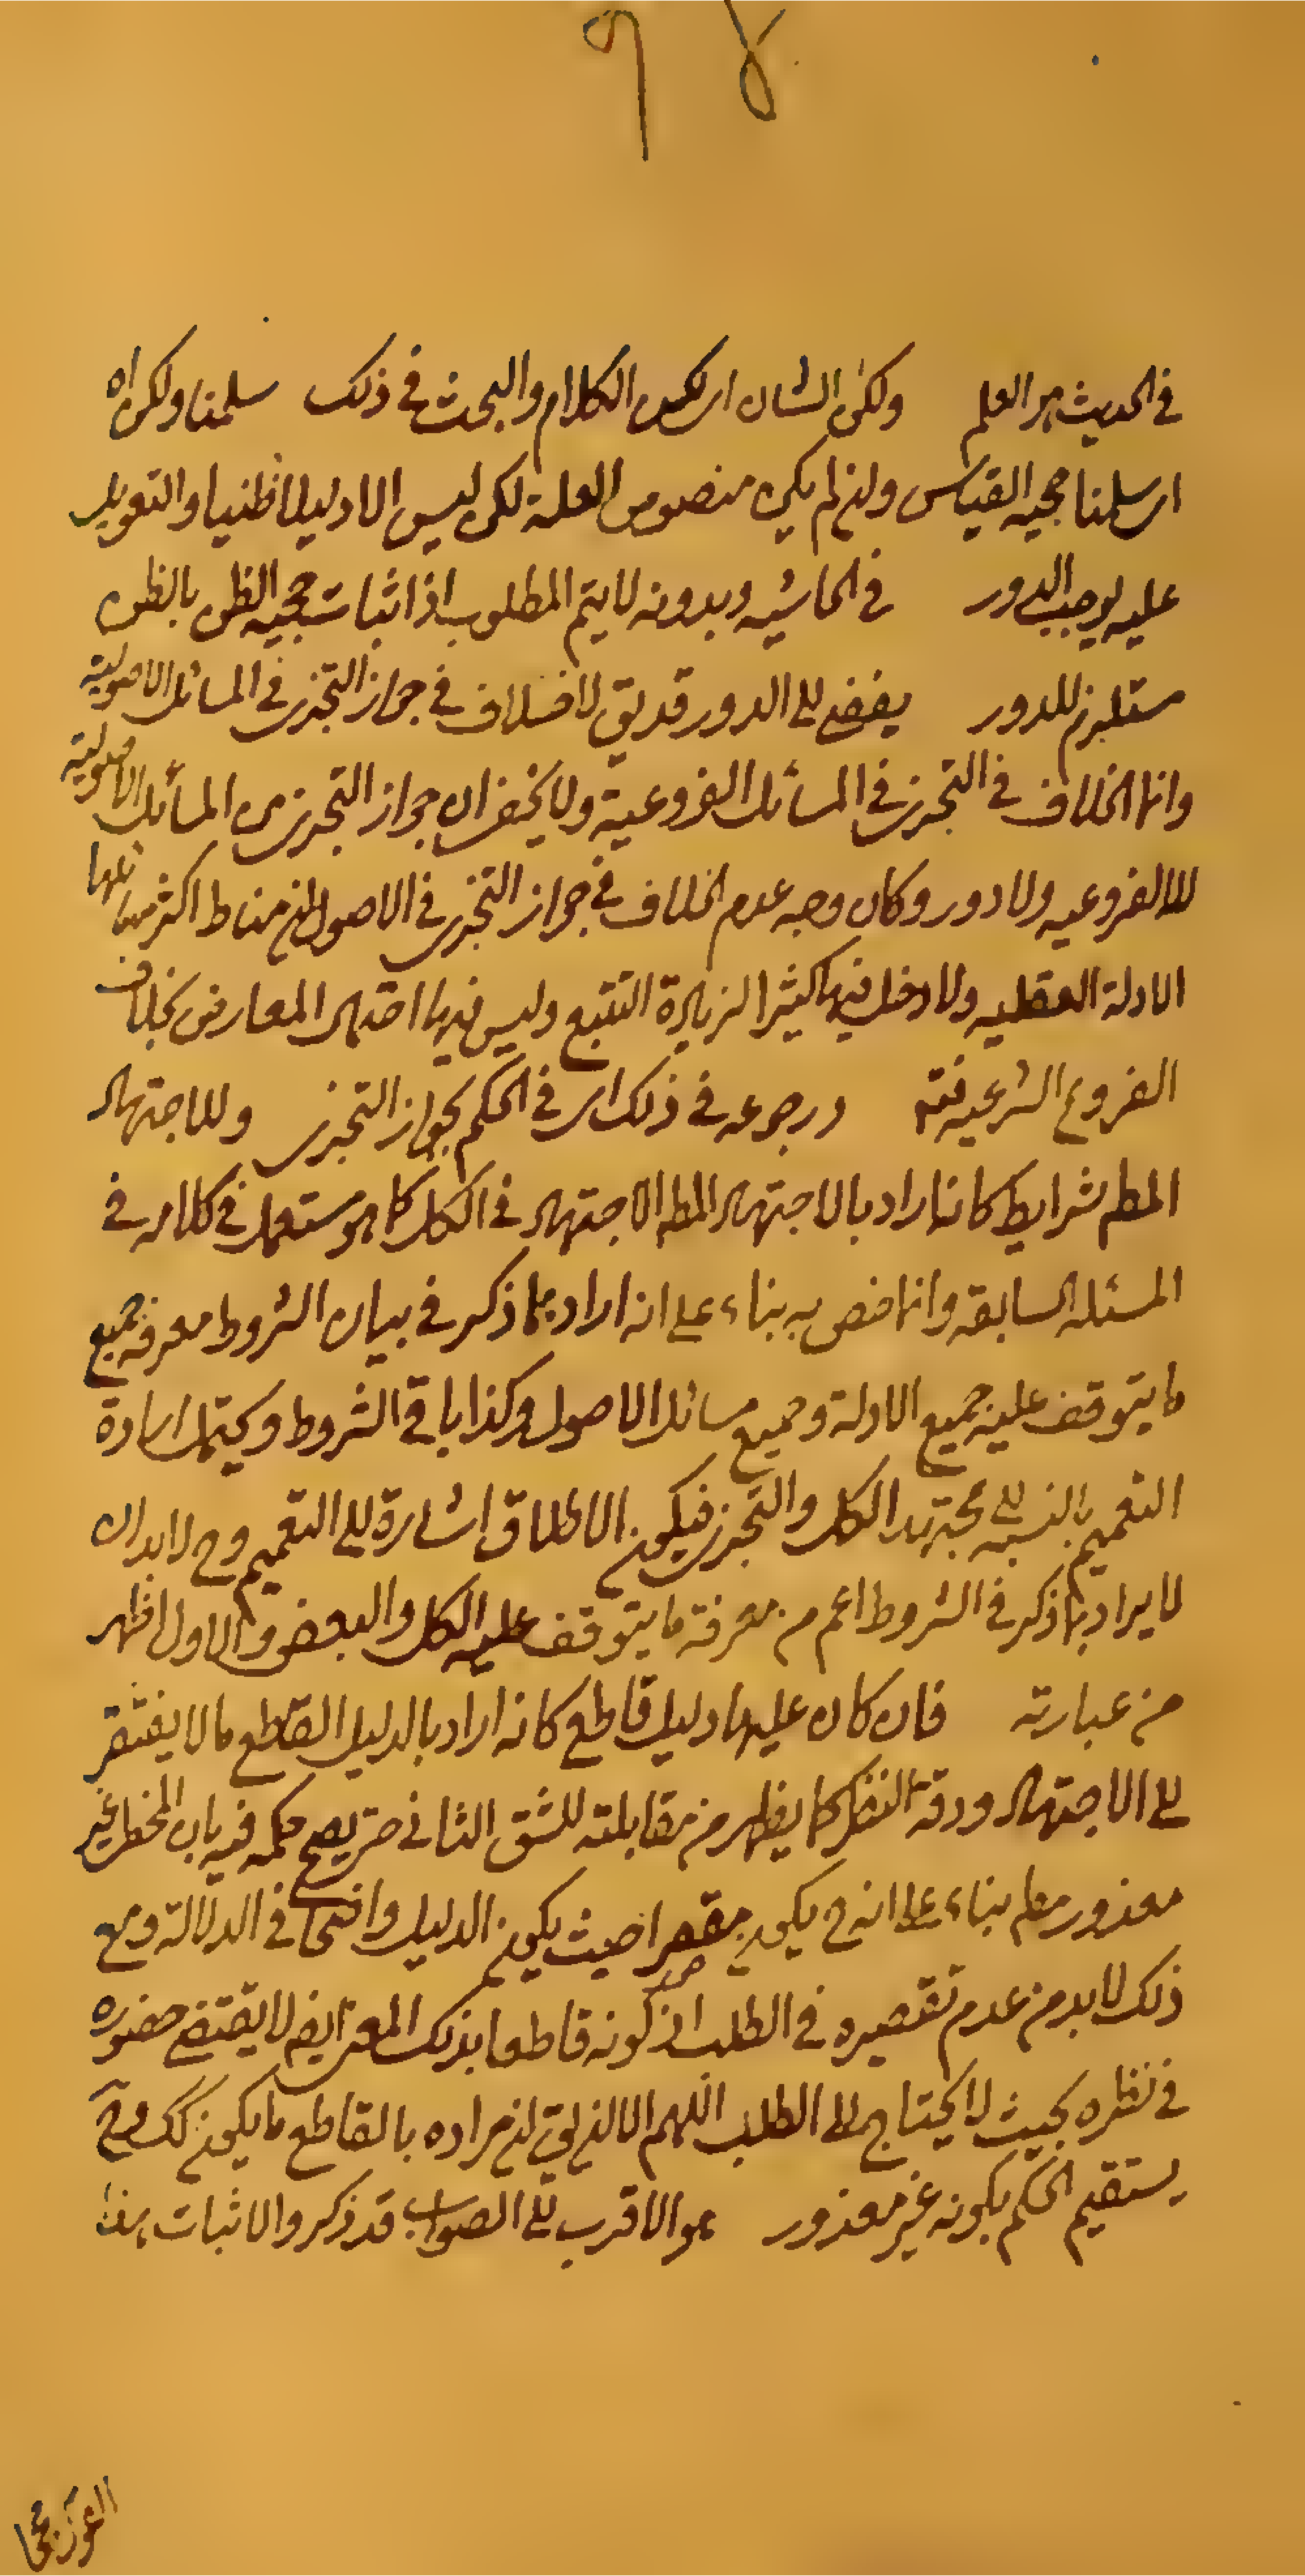 ٩٨
في الحديث هو العلم ولكن الشان اى لكن الكلام والبحث في ذلك سلمنا ولكن اه
اى سلمنا حجيه القياس وان لم يكن منصوص العلة لكن ليس الا دليلا ظنيا والتعويل
عليه يوجب الدور في الحاشيه وبدونه لا يتم المطلوب اذ اثبات حجيه الظن بالظن
مستلزم للدور يفضى الى الدور قد يق لا خلاف في جواز التجزى في المسائل الاصولية
وانما الخلاف في التجزى في المسائل الفروعية ولا يخفى ان جواز التجزى من المسائل الاصولية
لا الفروعيه ولا دور وكان وجه عدم الخلاف في جواز التجزى في الاصول ان مناط اكثر مسائلها
الادلة العقليه ولا دخل فيها كثيرا لزيادة التتبع وليس فيها احتمال المعارض بخلاف
الفروع الشرعيه فته ورجوعه في ذلك اى في الحكم بجواز التجزى وللاجتهاد
المطم شرايط كانه اراد بالاجتهاد المطم الاجتهاد في الكل كما هو مستعمل في كلامه في
المسئله السابقه وانما خص به بناء على انه اراد بما ذكر في بيان الشروط معرفة جميع
ما يتوقف عليه جميع الادلة وجميع مسائل الاصول وكذا باقي الشروط ويحتمل ارادة
التعميم بالنسبه الى مجتهد الكل والتجزى فيكون الاطلاق اشارة الى التعميم وح لا بد ان
لا يراد بما ذكر في الشروط اعم من معرفة ما يتوقف عليه الكل والبعض والاول اظهر
من عبارته فان كان عليها دليل قاطع كانه اراد بالدليل القاطع ما لا يفتقر
الى الاجتهاد ودقة النظر كما يظهر من مقابلته للشق الثاني حتى يصح حكمه فيه بان المخطى غير
معذور مطم بناء على انه ح يكون مقصرا حيث يكون الدليل واضحا في الدلالة ومع
ذلك لا بد من عدم تقصيره في الطلب اذ كونه قاطعا بذلك المعنى ايضا لا يقتضى حضوره
في نظره بحيث لا يحتاج الى الطلب اللهم الا ان يق ان مراده بالقاطع ما يكون كك وح
يستقيم الحكم بكونه غير معذور هو الاقرب الى الصواب قد ذكروا لاثبات هذا